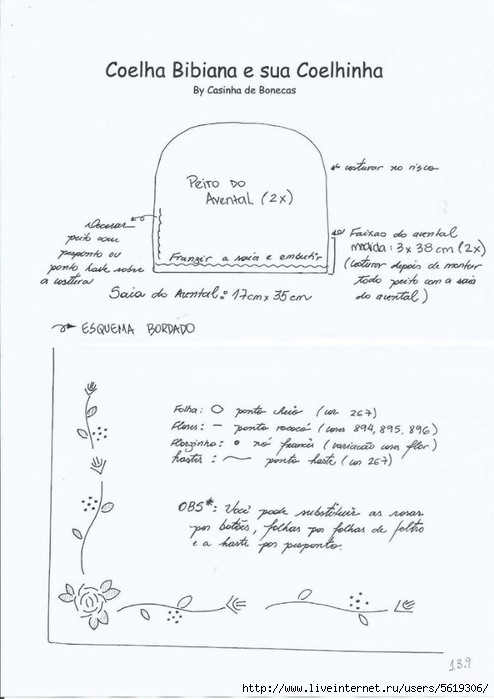 Coelha Bibiana e sua Coelhinha
By Casinha de Bonecas
Peito do
Avental (2x)
costurar no risco
Decorar
peito com
pesponto ou
ponto haste sobre
a costura
Franzir a saia e embutir
Faixas do avental
medida: 3 x 38 cm (2x)
(costurar depois de montar
todo peito com a saia
do avental)
Saia do Avental: 17cm x 35cm
ESQUEMA BORDADO
Folha: ponto cheio (cor 267)
Flores: ponto rococó (cores 894, 895, 896)
Florzinha: nó francês (variação cores flor)
hastes: ponto haste (cor 267)
OBS*: Você pode substituir as rosas
por botões, folhas por folhas de feltro
e a haste por pesponto.
139
http://www.liveinternet.ru/users/5619306/